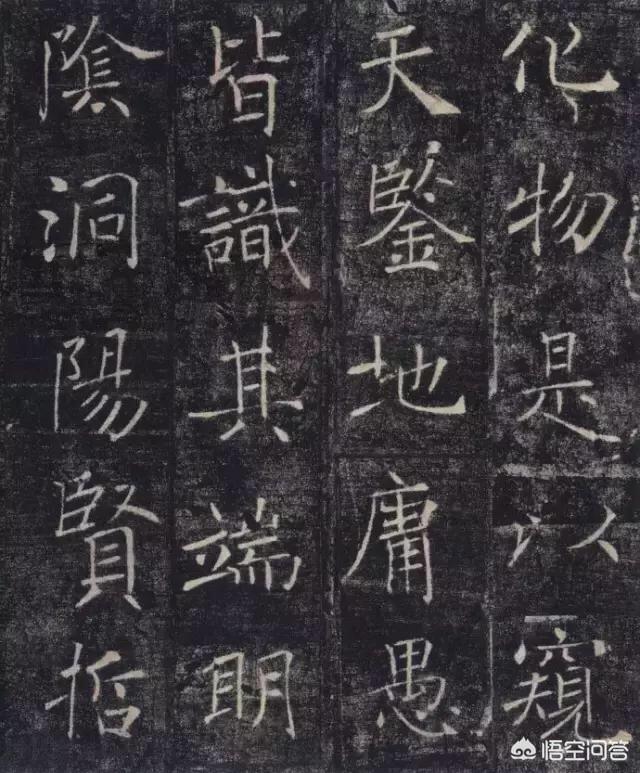 化物是以窺
天鑒地庸愚
皆識其端明
陰洞陽賢哲
悟空问答